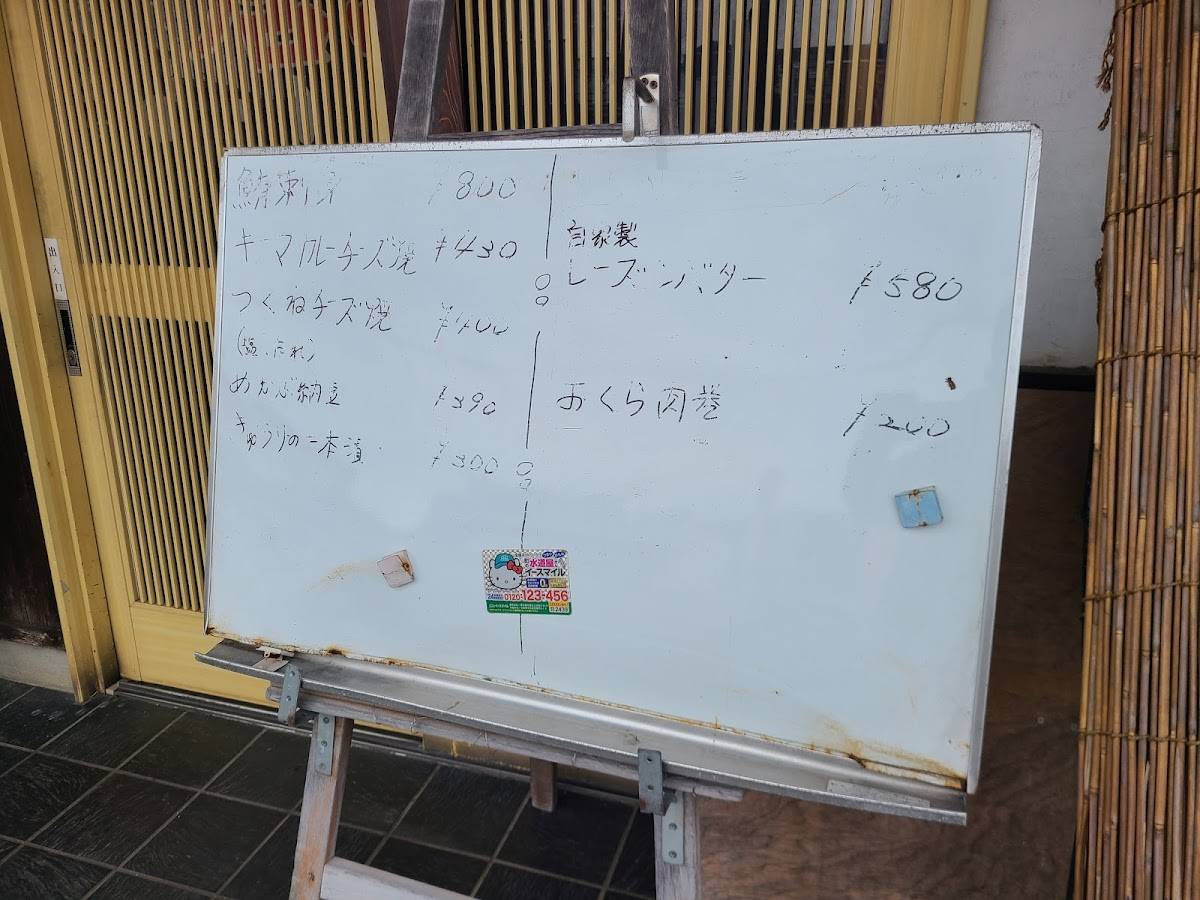 鮪刺身 ¥800
キーマカレーチーズ焼 ¥430
つくねチーズ焼 ¥400
(塩、たれ)
めかぶ納豆 ¥390
きゅうりの一本漬 ¥300
自家製
レーズンバター ¥580
おくら肉巻 ¥200
出入口
水道屋
イースマイル
0120-123-456